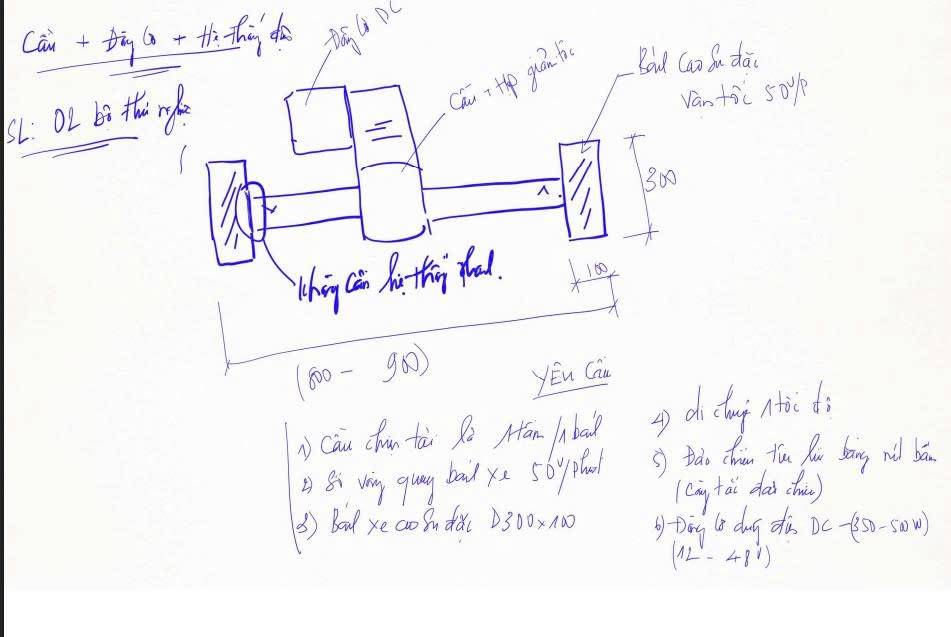 Cầu + Động cơ + Hệ thống điện
SL: 02 bộ thử nghiệm
Động cơ DC
Cầu + Hộp giảm tốc
Bánh cao su đặc
Vận tốc 50v/p
300
100
Không cần hệ thống phanh.
(800 - 900)
YÊU CẦU
1) Cầu chịu tải là 1 tấn/1 bánh
2) Số vòng quay bánh xe 50v/phút
3) Bánh xe cao su đặc D300x100
4) di chuyển 1 tốc độ
5) Đảo chiều tiến lùi bằng nút bấm
(Công tắc đảo chiều)
6) Động cơ dùng điện DC -(350-500W)
(12 - 48V)